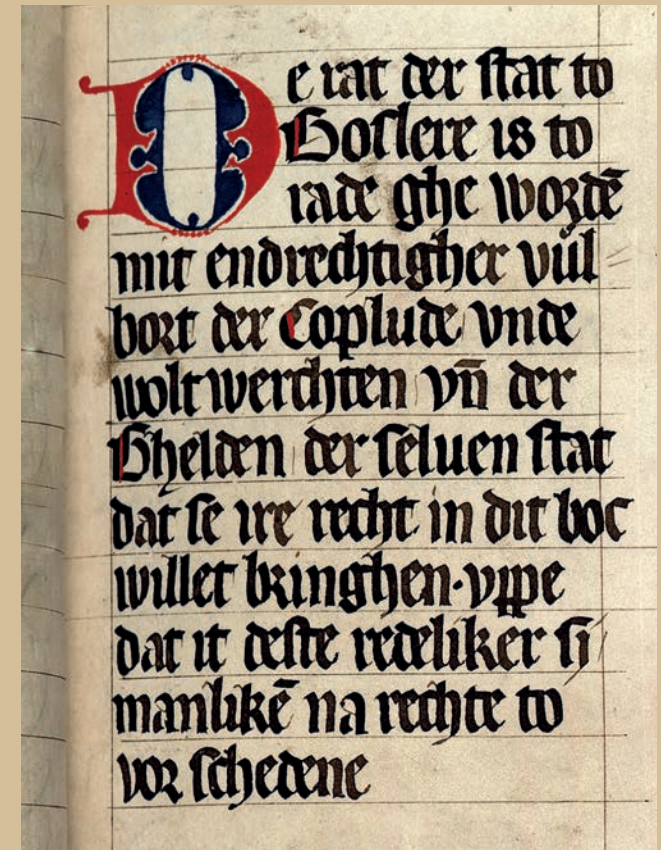 De rat der stat to
Goslere is to
rade ghe wordē
mit endrechtigher vul
bort der Coplude vnde
woltwerchten vn̄ der
Ghelden der seluen stat
dat se ire recht in dit boc
willet bringhen·vppe
dat it deste redeliker si
manlikē na rechte to
vor schedene